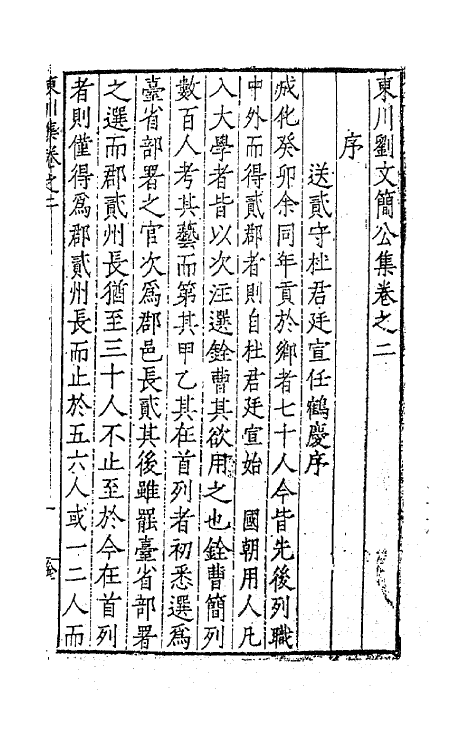 東川劉文簡公集卷之二
序
送貳守杜君廷宣任鶴慶序
成化癸卯余同年貢於鄉者七十人今皆先後列職
中外而得貳郡者則自杜君廷宣始 國朝用人凡
入大學者皆以次注選銓曹其欲用之也銓曹簡列
數百人考其藝而第其甲乙其在首列者初悉選爲
臺省部署之官次爲郡邑長貳其後雖罷臺省部署
之選而郡貳州長猶至三十人不止至於今在首列
者則僅得爲郡貳州長而止於五六人或一二人而
東川集卷之二
一